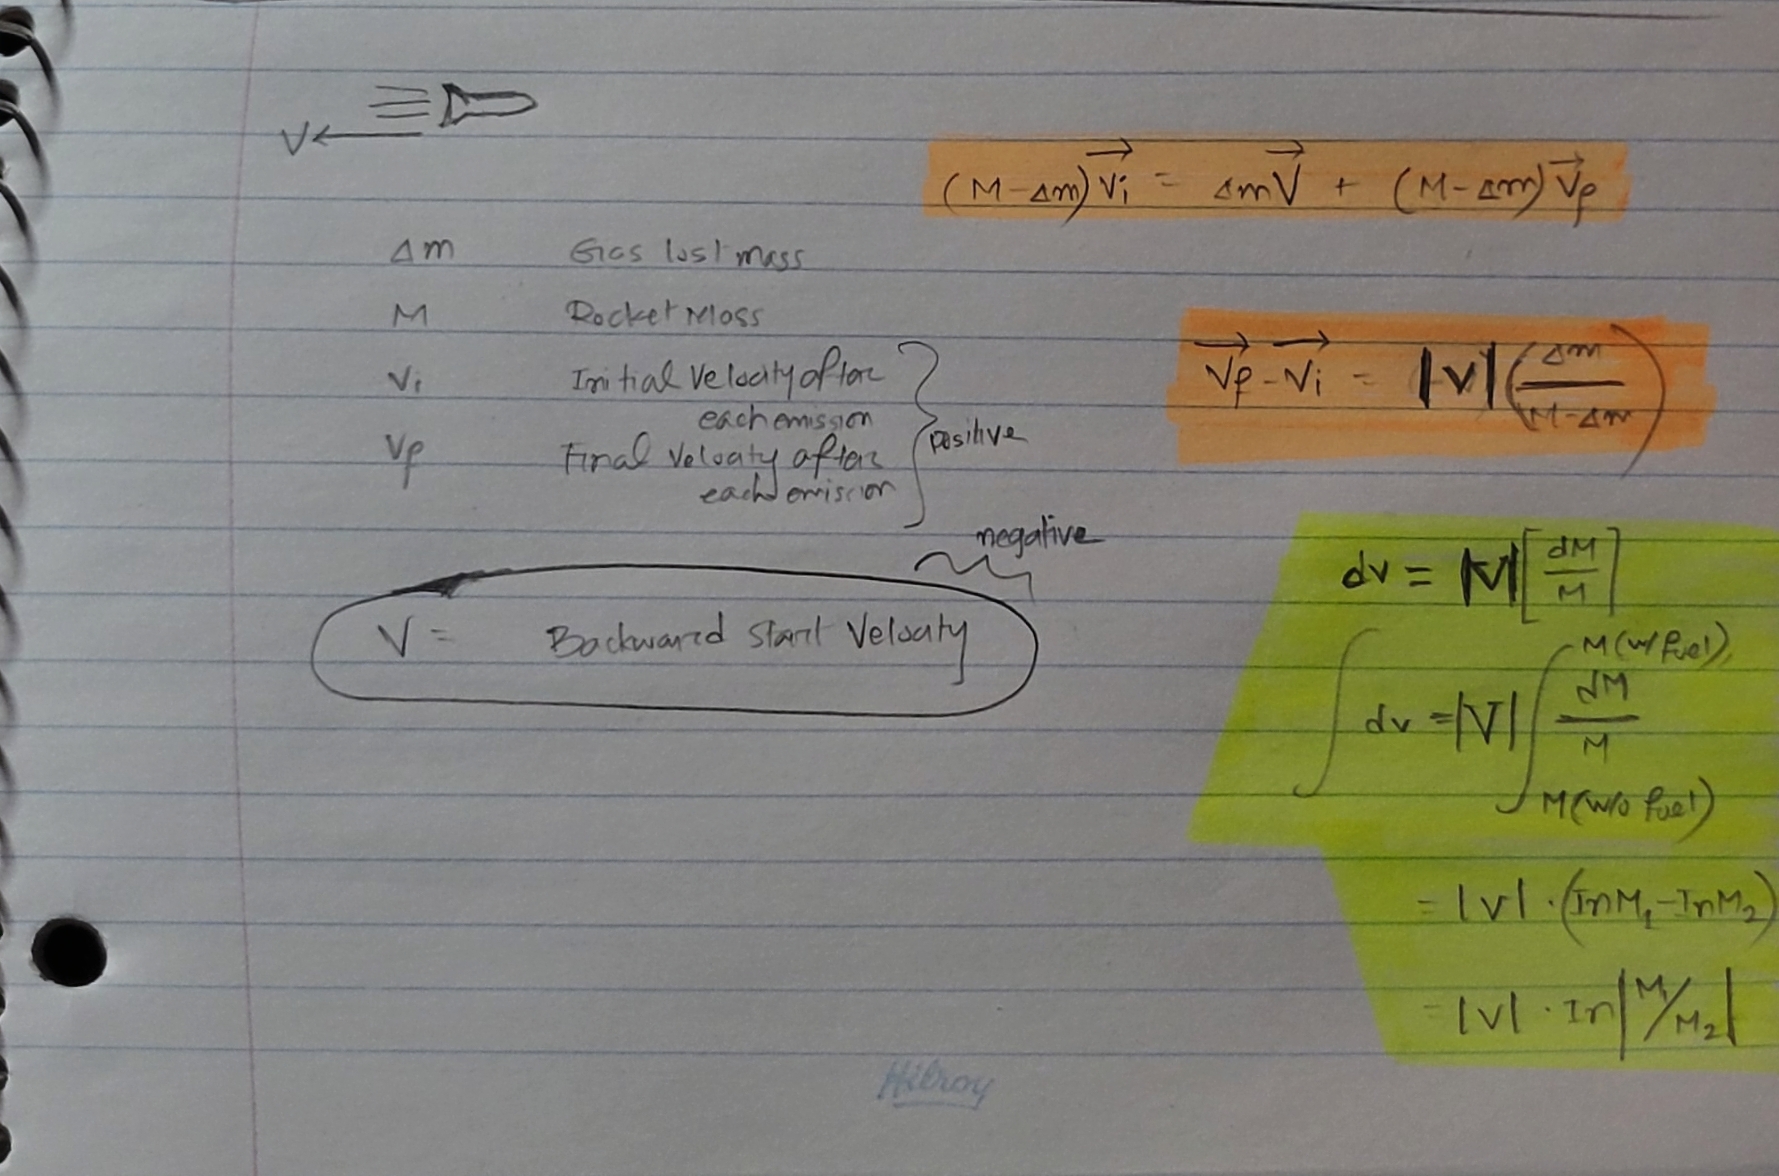 V
(M-Δm)Vi = ΔmV + (M-Δm)Vf
Δm Gas lost mass
M Rocket Mass
Vi Initial Velocity after
each emission
Vf Final Velocity after
each emission
positive
negative
V = Backward Start Velocity
Vf - Vi = |V| (Δm / M-Δm)
dv = |V| [dM / M]
∫ dv = |V| ∫ dM / M
M (w/ fuel)
M (w/o fuel)
= |V| · (InM1 - InM2)
= |V| · In |M1/M2|
Hilroy